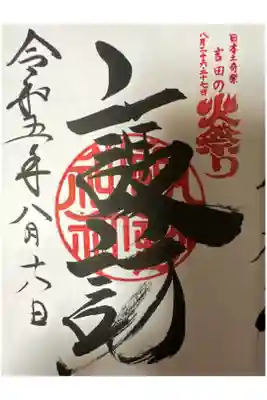 日本三奇祭
吉田の火祭り
八月二十六・二十七日
諏訪
令和五年八月六日